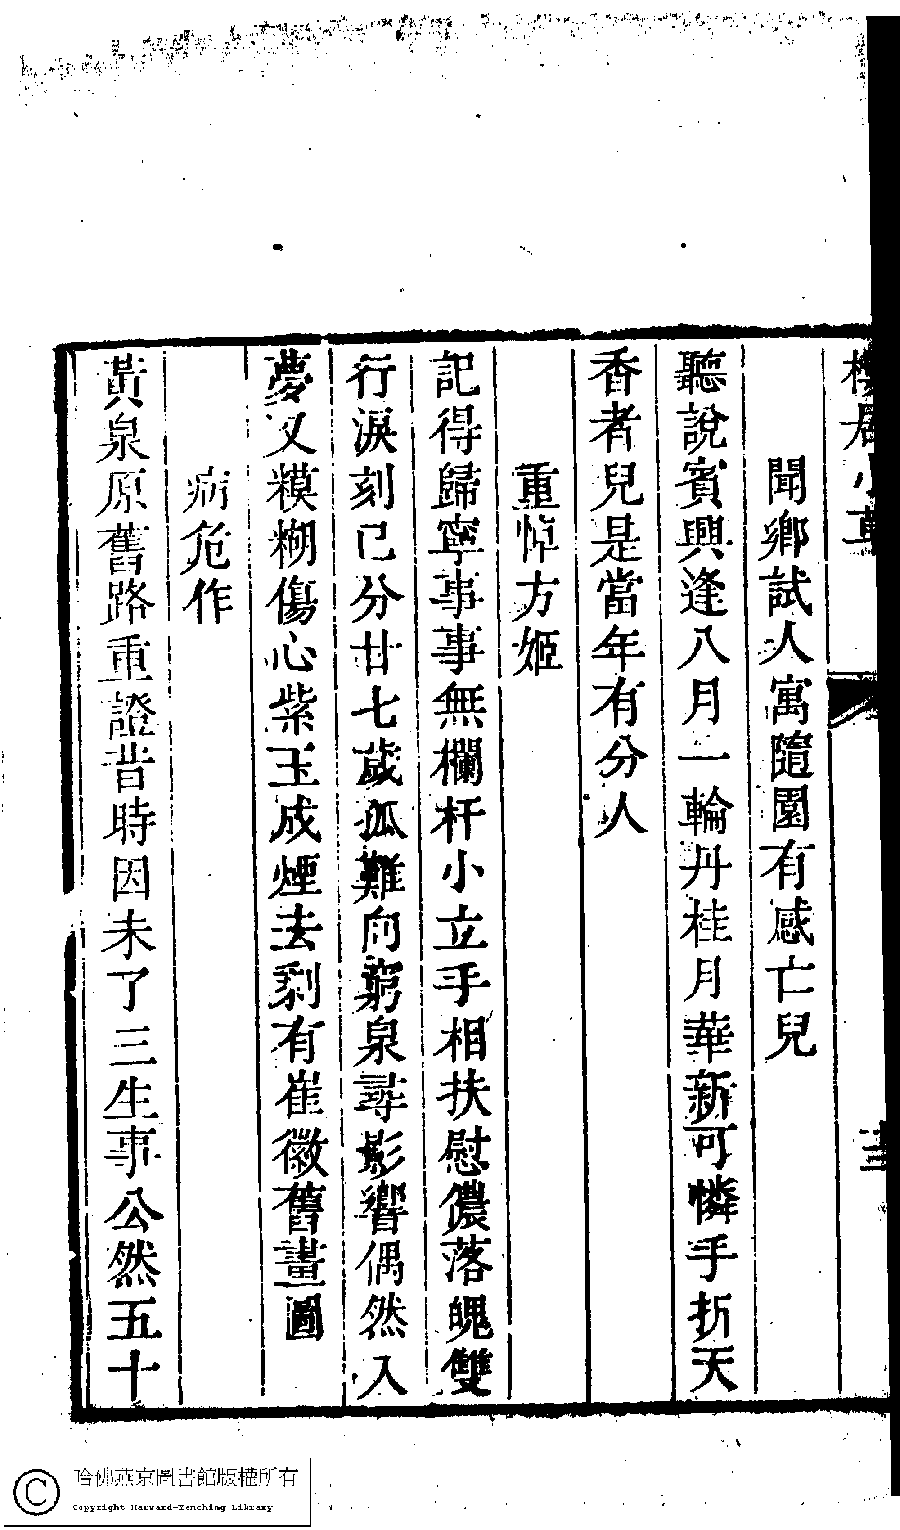 樓居小草
聞鄉試人寓隨園有感亡兒
聽說賓興逢八月一輪丹桂月華新可憐手折天
香者兒是當年有分人
重悼方姬
記得歸寧事事無欄杆小立手相扶慰儂落魄雙
行淚刻已分廿七歲孤難向窮泉尋影響偶然入
夢又糢糊傷心紫玉成煙去剩有崔徽舊畫圖
病危作
黃泉原舊路重證昔時因未了三生事公然五十
哈佛燕京圖書館版權所有
Copyright Harvard-Yenching Library